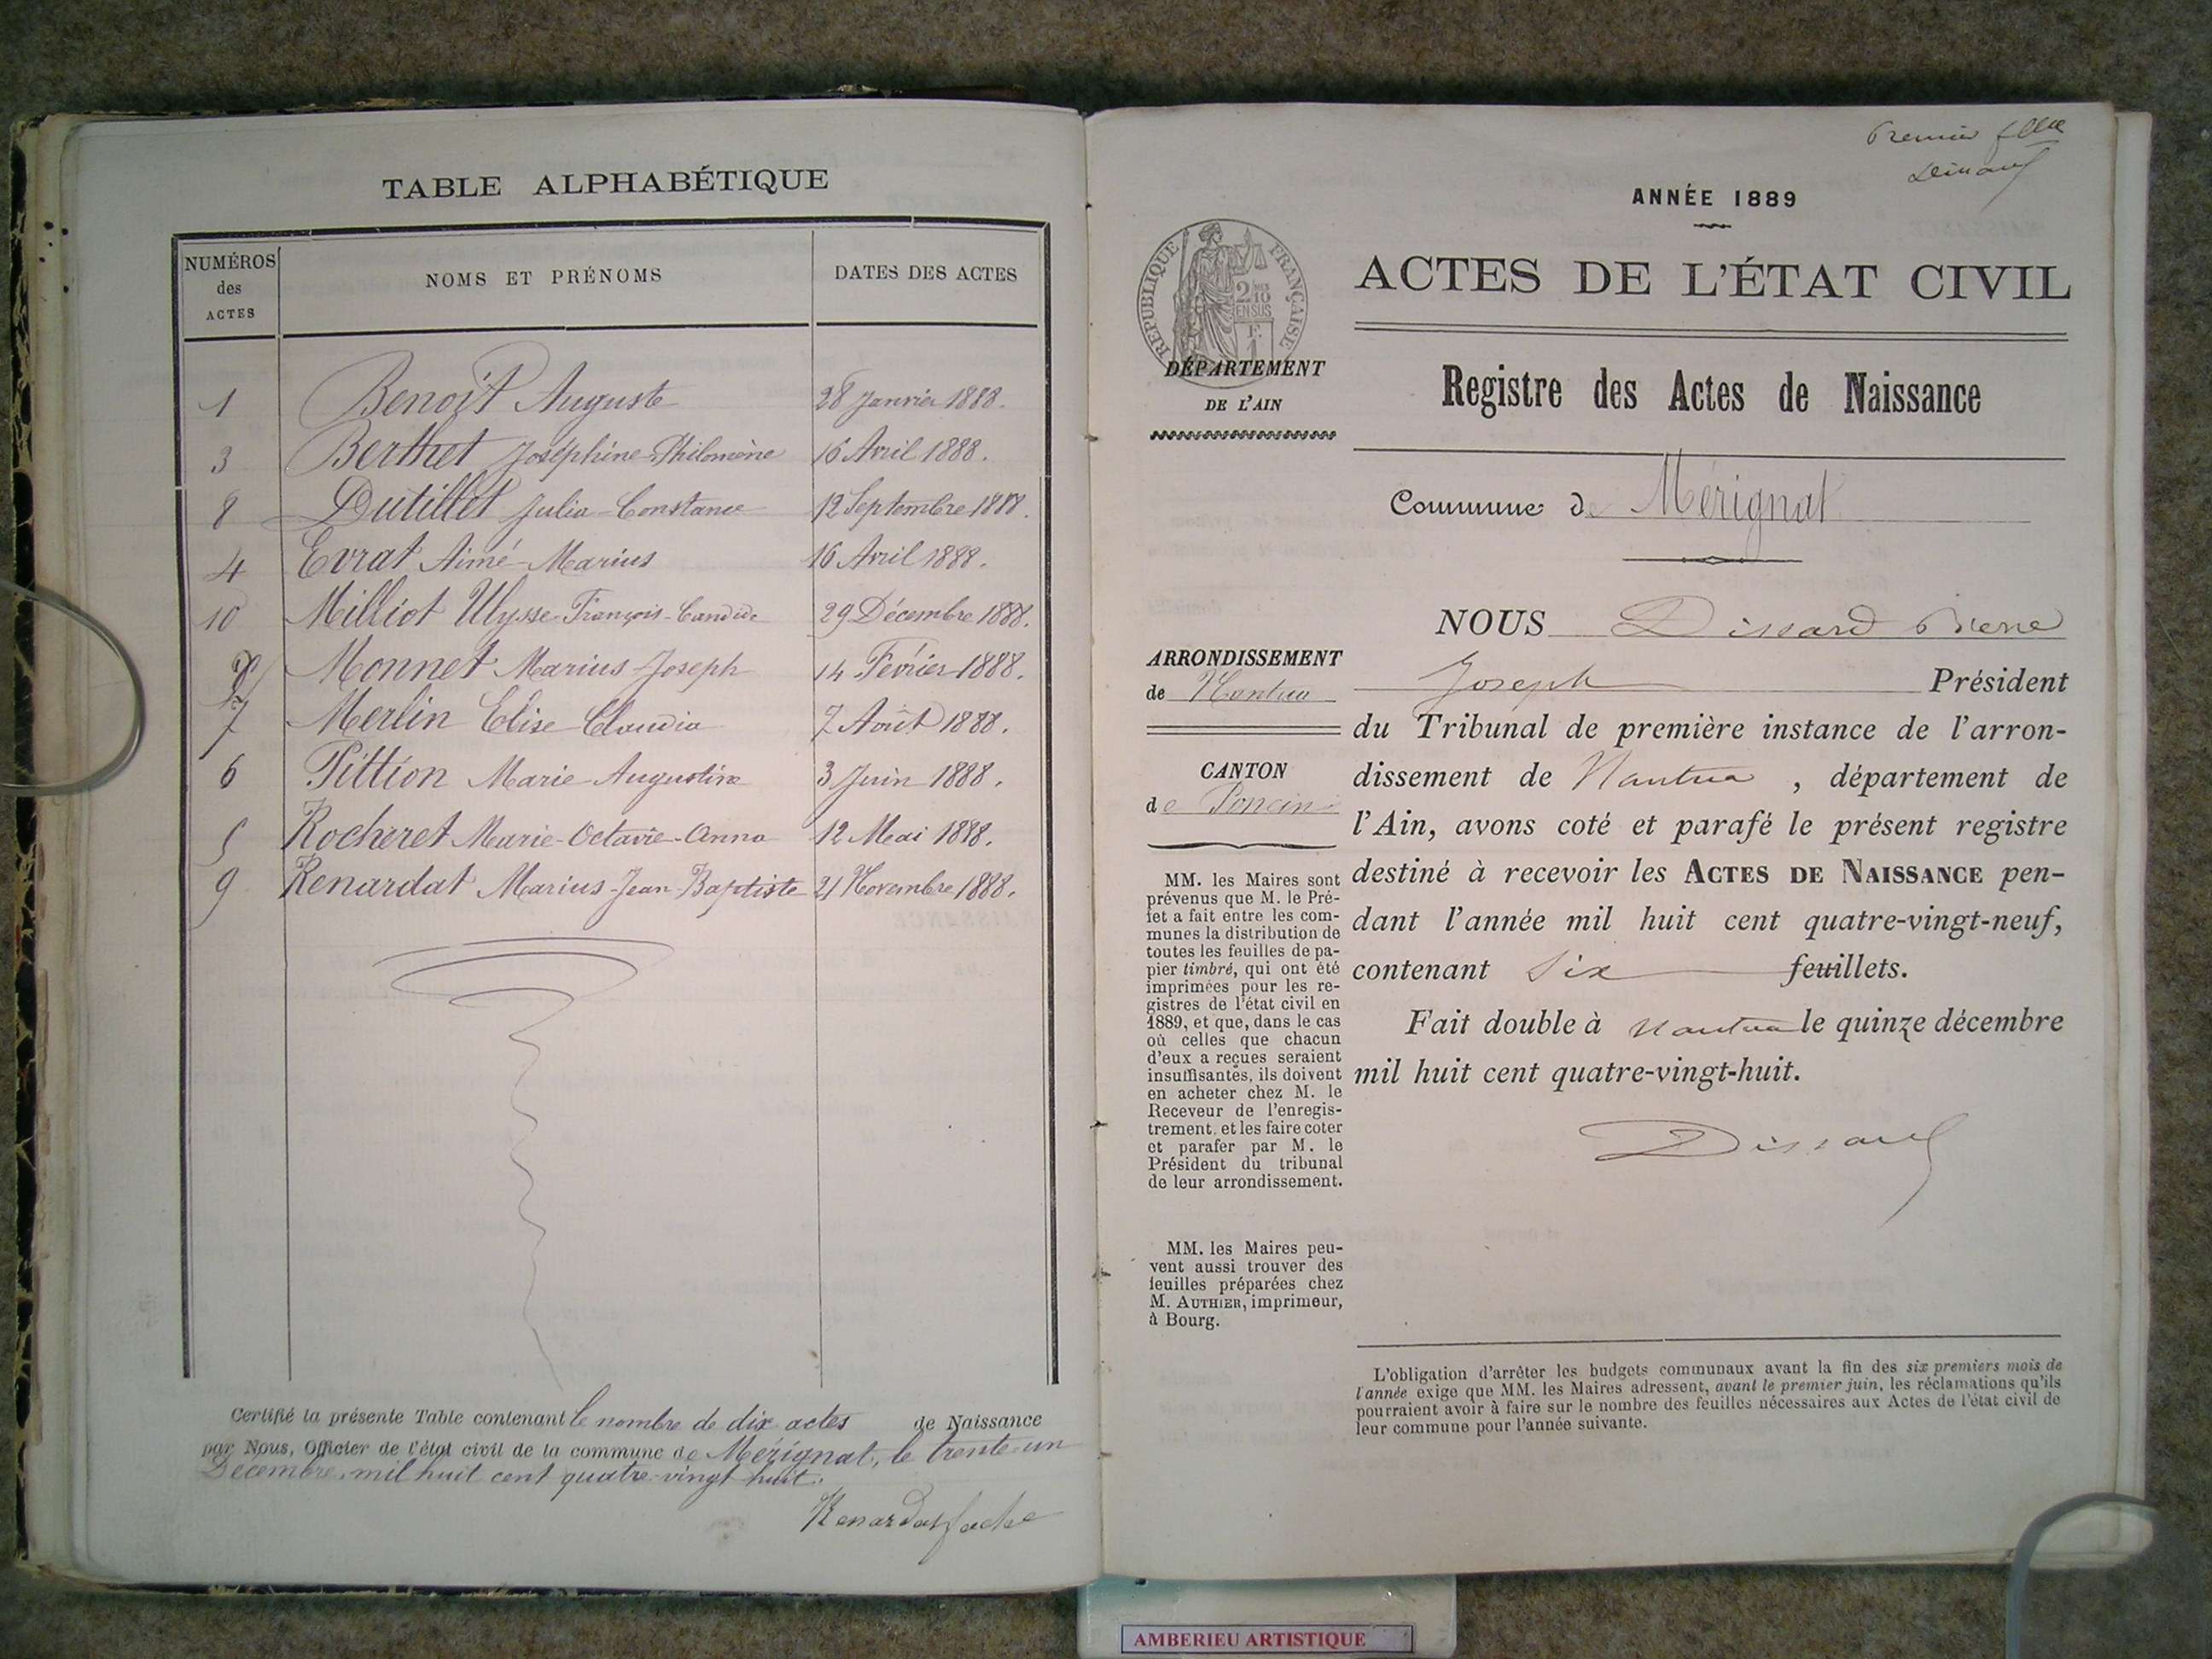 TABLE ALPHABÉTIQUE
NUMÉROS des ACTES NOMS ET PRÉNOMS DATES DES ACTES
1 Benoît Auguste 28 Janvier 1888.
3 Berthet Joséphine-Philomène 16 Avril 1888.
8 Dutillet Julia-Constance 12 Septembre 1888.
4 Evrat Aimé-Marius 16 Avril 1888.
10 Milliot Ulysse-François-Candide 29 Décembre 1888.
Monnet Marius-Joseph 14 Février 1888.
7 Merlin Elise Claudia 7 Août 1888.
6 Pittion Marie-Augustine 3 Juin 1888.
5 Rocheret Marie-Octavie-Anna 12 Mai 1888.
9 Renardat Marius-Jean-Baptiste 21 Novembre 1888.
Certifié la présente Table contenant le nombre de dix actes de Naissance
par Nous, Officier de l'état civil de la commune de Mérignat, le trente-un
Décembre, mil huit cent quatre-vingt huit.
Premier
ANNÉE 1889
ACTES DE L'ÉTAT CIVIL
RÉPUBLIQUE FRANÇAISE
2/10 EN SUS
F. 1
DÉPARTEMENT
DE L'AIN
Registre des Actes de Naissance
Commune de Mérignat
ARRONDISSEMENT
de Nantua
CANTON
de Poncin
MM. les Maires sont
prévenus que M. le Pré-
fet a fait entre les com-
munes la distribution de
toutes les feuilles de pa-
pier timbré, qui ont été
imprimées pour les re-
gistres de l'état civil en
1889, et que, dans le cas
où celles que chacun
d'eux a reçues seraient
insuffisantes, ils doivent
en acheter chez M. le
Receveur de l'enregis-
trement, et les faire coter
et parafer par M. le
Président du tribunal
de leur arrondissement.
MM. les Maires peu-
vent aussi trouver des
feuilles préparées chez
M. AUTHIER, imprimeur,
à Bourg.
NOUS Dissard Pierre
Joseph Président
du Tribunal de première instance de l'arron-
dissement de Nantua, département de
l'Ain, avons coté et parafé le présent registre
destiné à recevoir les ACTES DE NAISSANCE pen-
dant l'année mil huit cent quatre-vingt-neuf,
contenant six feuillets.
Fait double à Nantua le quinze décembre
mil huit cent quatre-vingt-huit.
Dissard
L'obligation d'arrêter les budgets communaux avant la fin des six premiers mois de
l'année exige que MM. les Maires adressent, avant le premier juin, les réclamations qu'ils
pourraient avoir à faire sur le nombre des feuilles nécessaires aux Actes de l'état civil de
leur commune pour l'année suivante.
AMBERIEU ARTISTIQUE